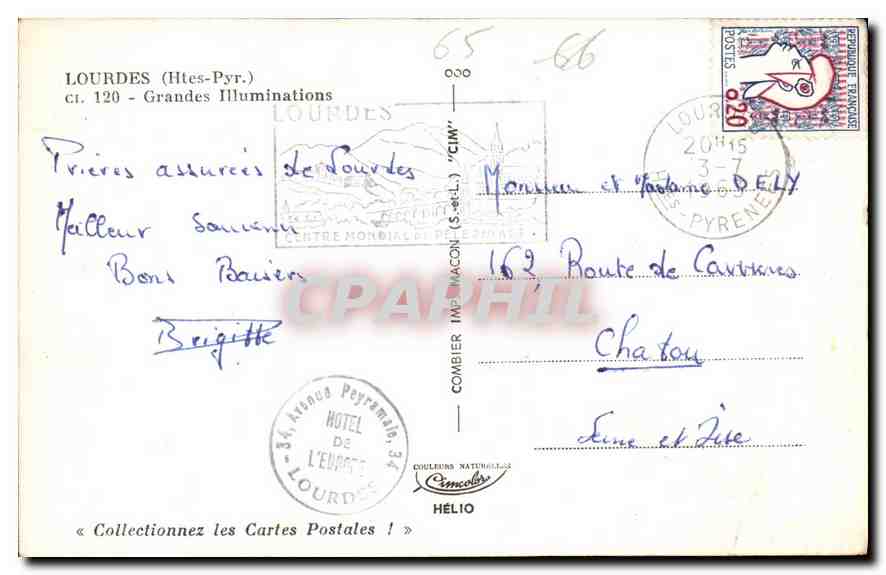 65
66
LOURDES (Htes-Pyr.)
CI. 120 - Grandes Illuminations
RÉPUBLIQUE FRANÇAISE
POSTES
0,20
LOURDES
CENTRE MONDIAL DE PÈLERINAGE
20H15
3-7
HTES-PYRENEES
Prières assurées de Lourdes
Meilleur Souvenir
Bons Baisers
Brigitte
COMBIER IMP. MACON (S.-et-L.) "CIM"
Monsieur et Madame DELY
162, Route de Carrières
Chatou
Seine et Oise
CPAPHIL
34, Avenue Peyramale, 34
HOTEL
DE
L'EUROPE
LOURDES
COULEURS NATURELLES
Cimcolor
HÉLIO
« Collectionnez les Cartes Postales ! »